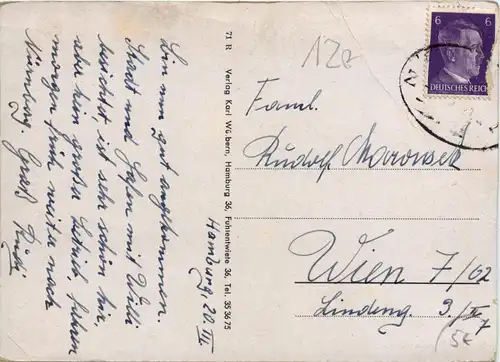 Hamburg, 20. III.
Bin nun gut angekommen.
Stadt und Hafen mit Willi
besichtigt, ist sehr schön hier,
aber kein großer Betrieb, fahren
morgen früh weiter nach
Nürnberg. Gruß Rudi
71 R Verlag Karl Wübbern, Hamburg 36, Fuhlentwiete 36, Tel. 35 36 75
120
6 6
DEUTSCHES REICH
Faml.
Rudolf Marousek
Wien 7/62
Lindeng. 9/II/7
5€